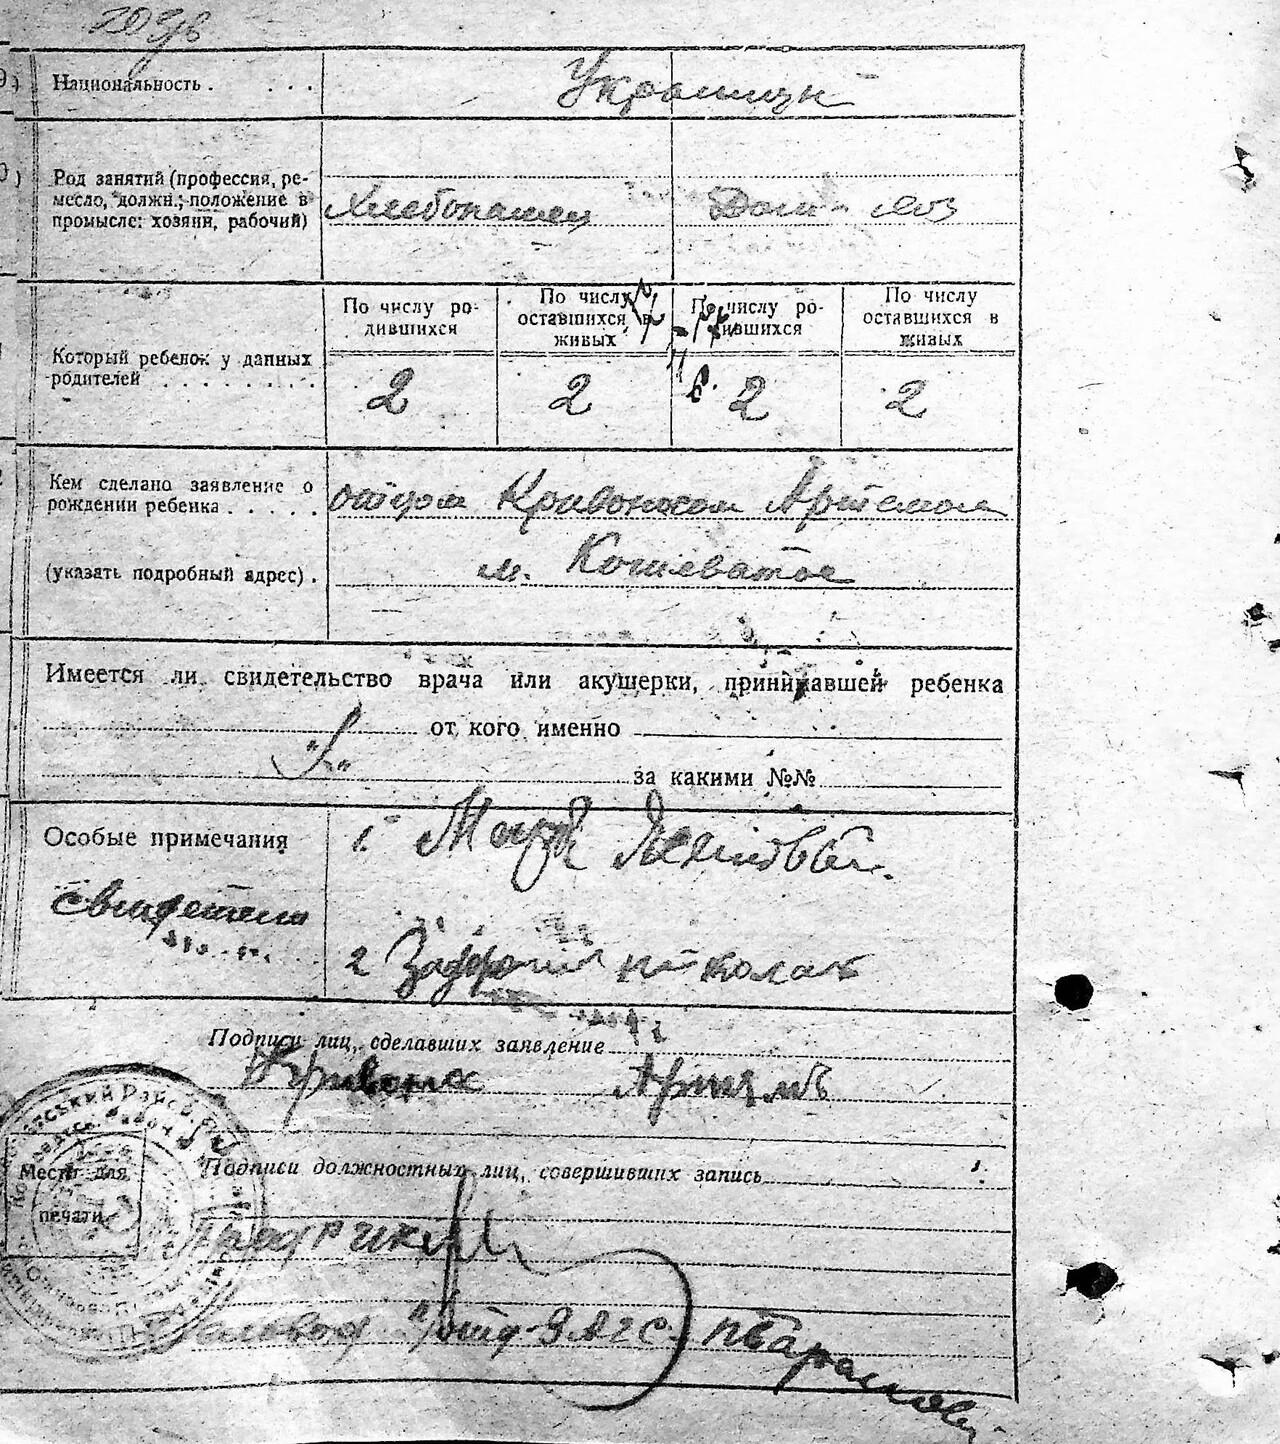 9)
Национальность . . . .
Украинцы
Род занятий (профессия, ре-
месло, должн.; положение в
промысле: хозяин, рабочий)
Хлебопашец Дом- хоз
Который ребенок у данных
родителей . . . . . . . .
По числу ро-
дившихся
По числу
оставшихся в
живых
По числу ро-
дившихся
По числу
оставшихся в
живых
2 2 2 2
Кем сделано заявление о
рождении ребенка . . . . .
отцом Кривоносом Артемом
(указать подробный адрес) .
м. Кошеватое
Имеется ли свидетельство врача или акушерки, принимавшей ребенка
от кого именно
за какими №№
Особые примечания
свидетели
1.
2 Задорожний николай
Подписи лиц, сделавших заявление
Кривонос Артемъ
Место для
печати
Подписи должностных лиц, совершивших запись
ЗАГС